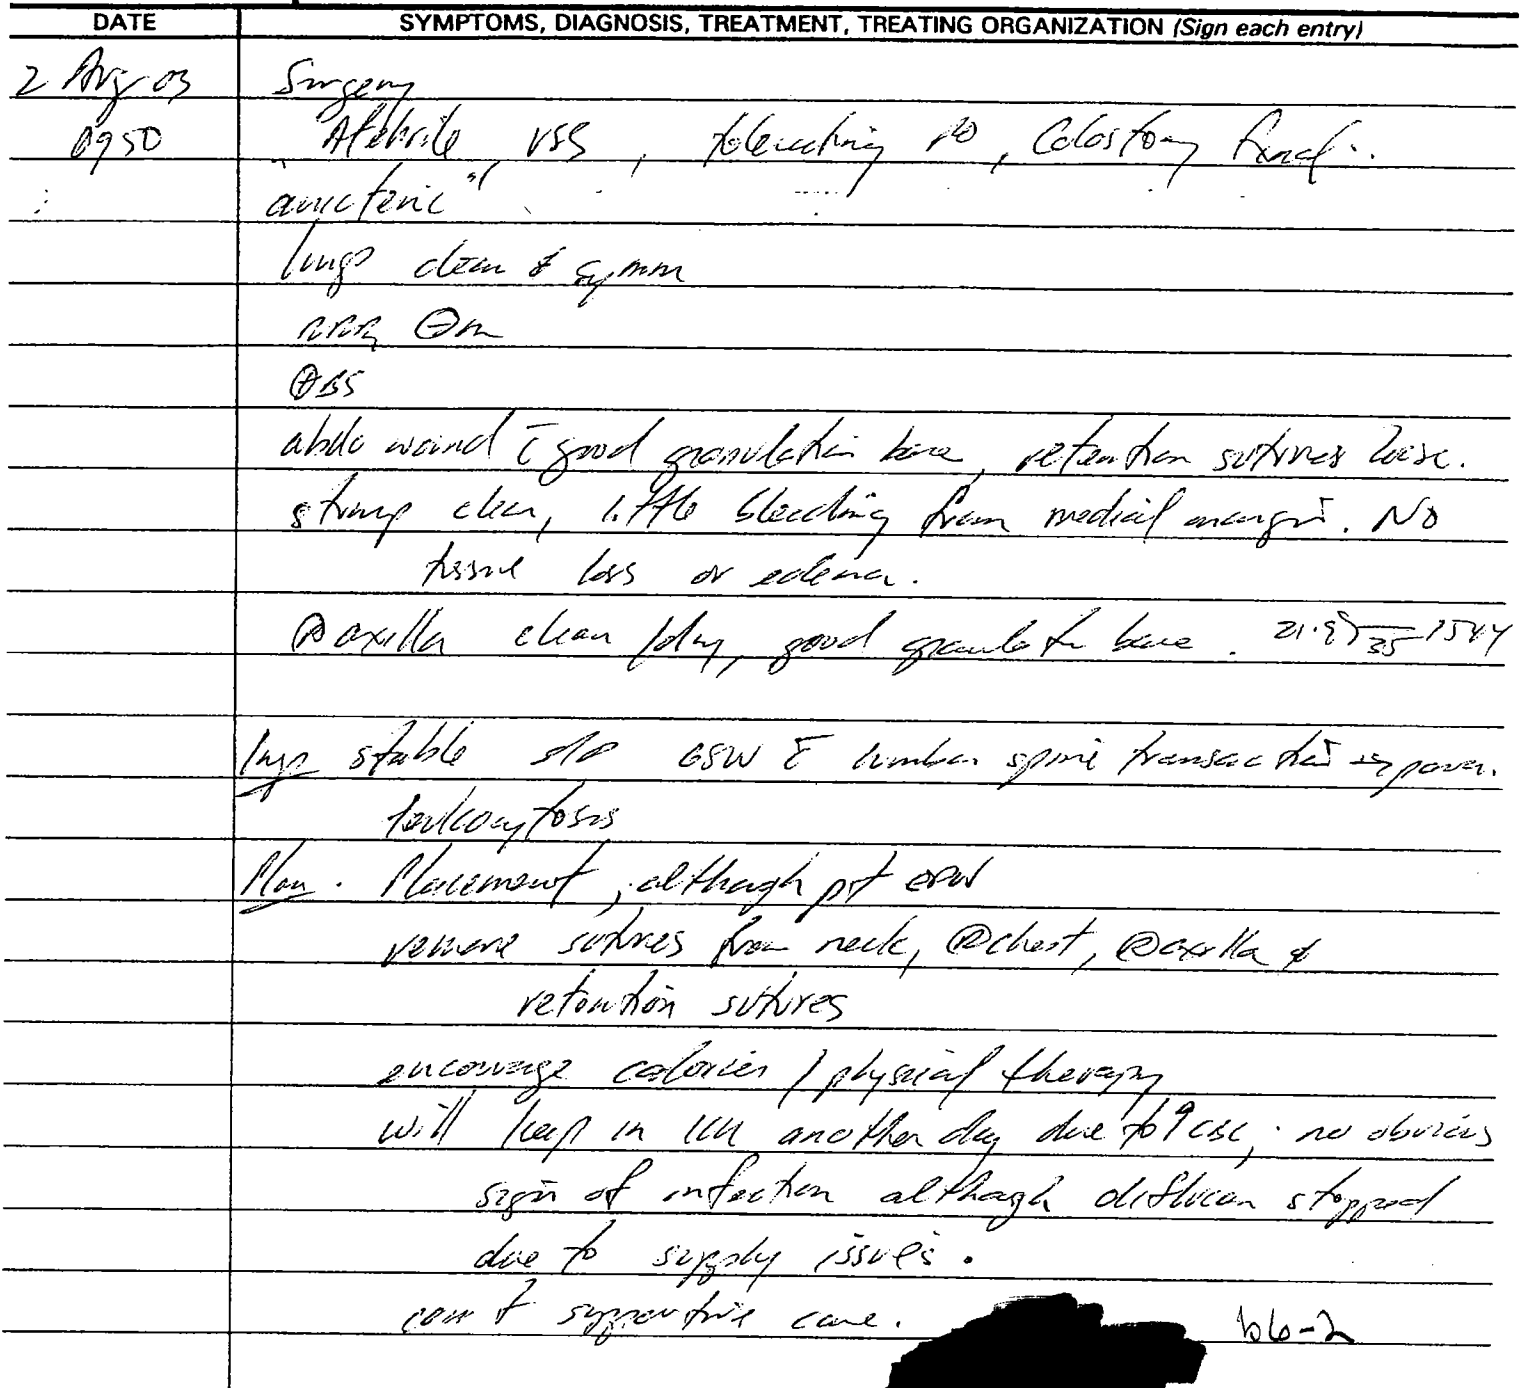 DATE SYMPTOMS, DIAGNOSIS, TREATMENT, TREATING ORGANIZATION (Sign each entry)
2 Aug 03 Surgery
0950 Afebrile, VSS, tolerating PO, Colostomy funct.
anicteric
lungs clear & symm
RRR ⊖m
⊕BS
abdo wound c̄ good granulation base, retention sutures loose.
stump clean, little bleeding from medial margin. No
tissue loss or edema.
Ⓡ axilla clean/dry, good granulatn base. 21.9 35 1544
Imp stable s/p GSW c̄ lumbar spine transaction
leukocytosis
Plan. Placement, although pt EPW
remove sutures from neck, Ⓡ chest, Ⓡ axilla &
retention sutures
encourage calories / physical therapy
will keep in ICU another day due to ↑ CBC; no obvious
sign of infection although diflucan stopped
due to supply issues.
cont supportive care. b6-2